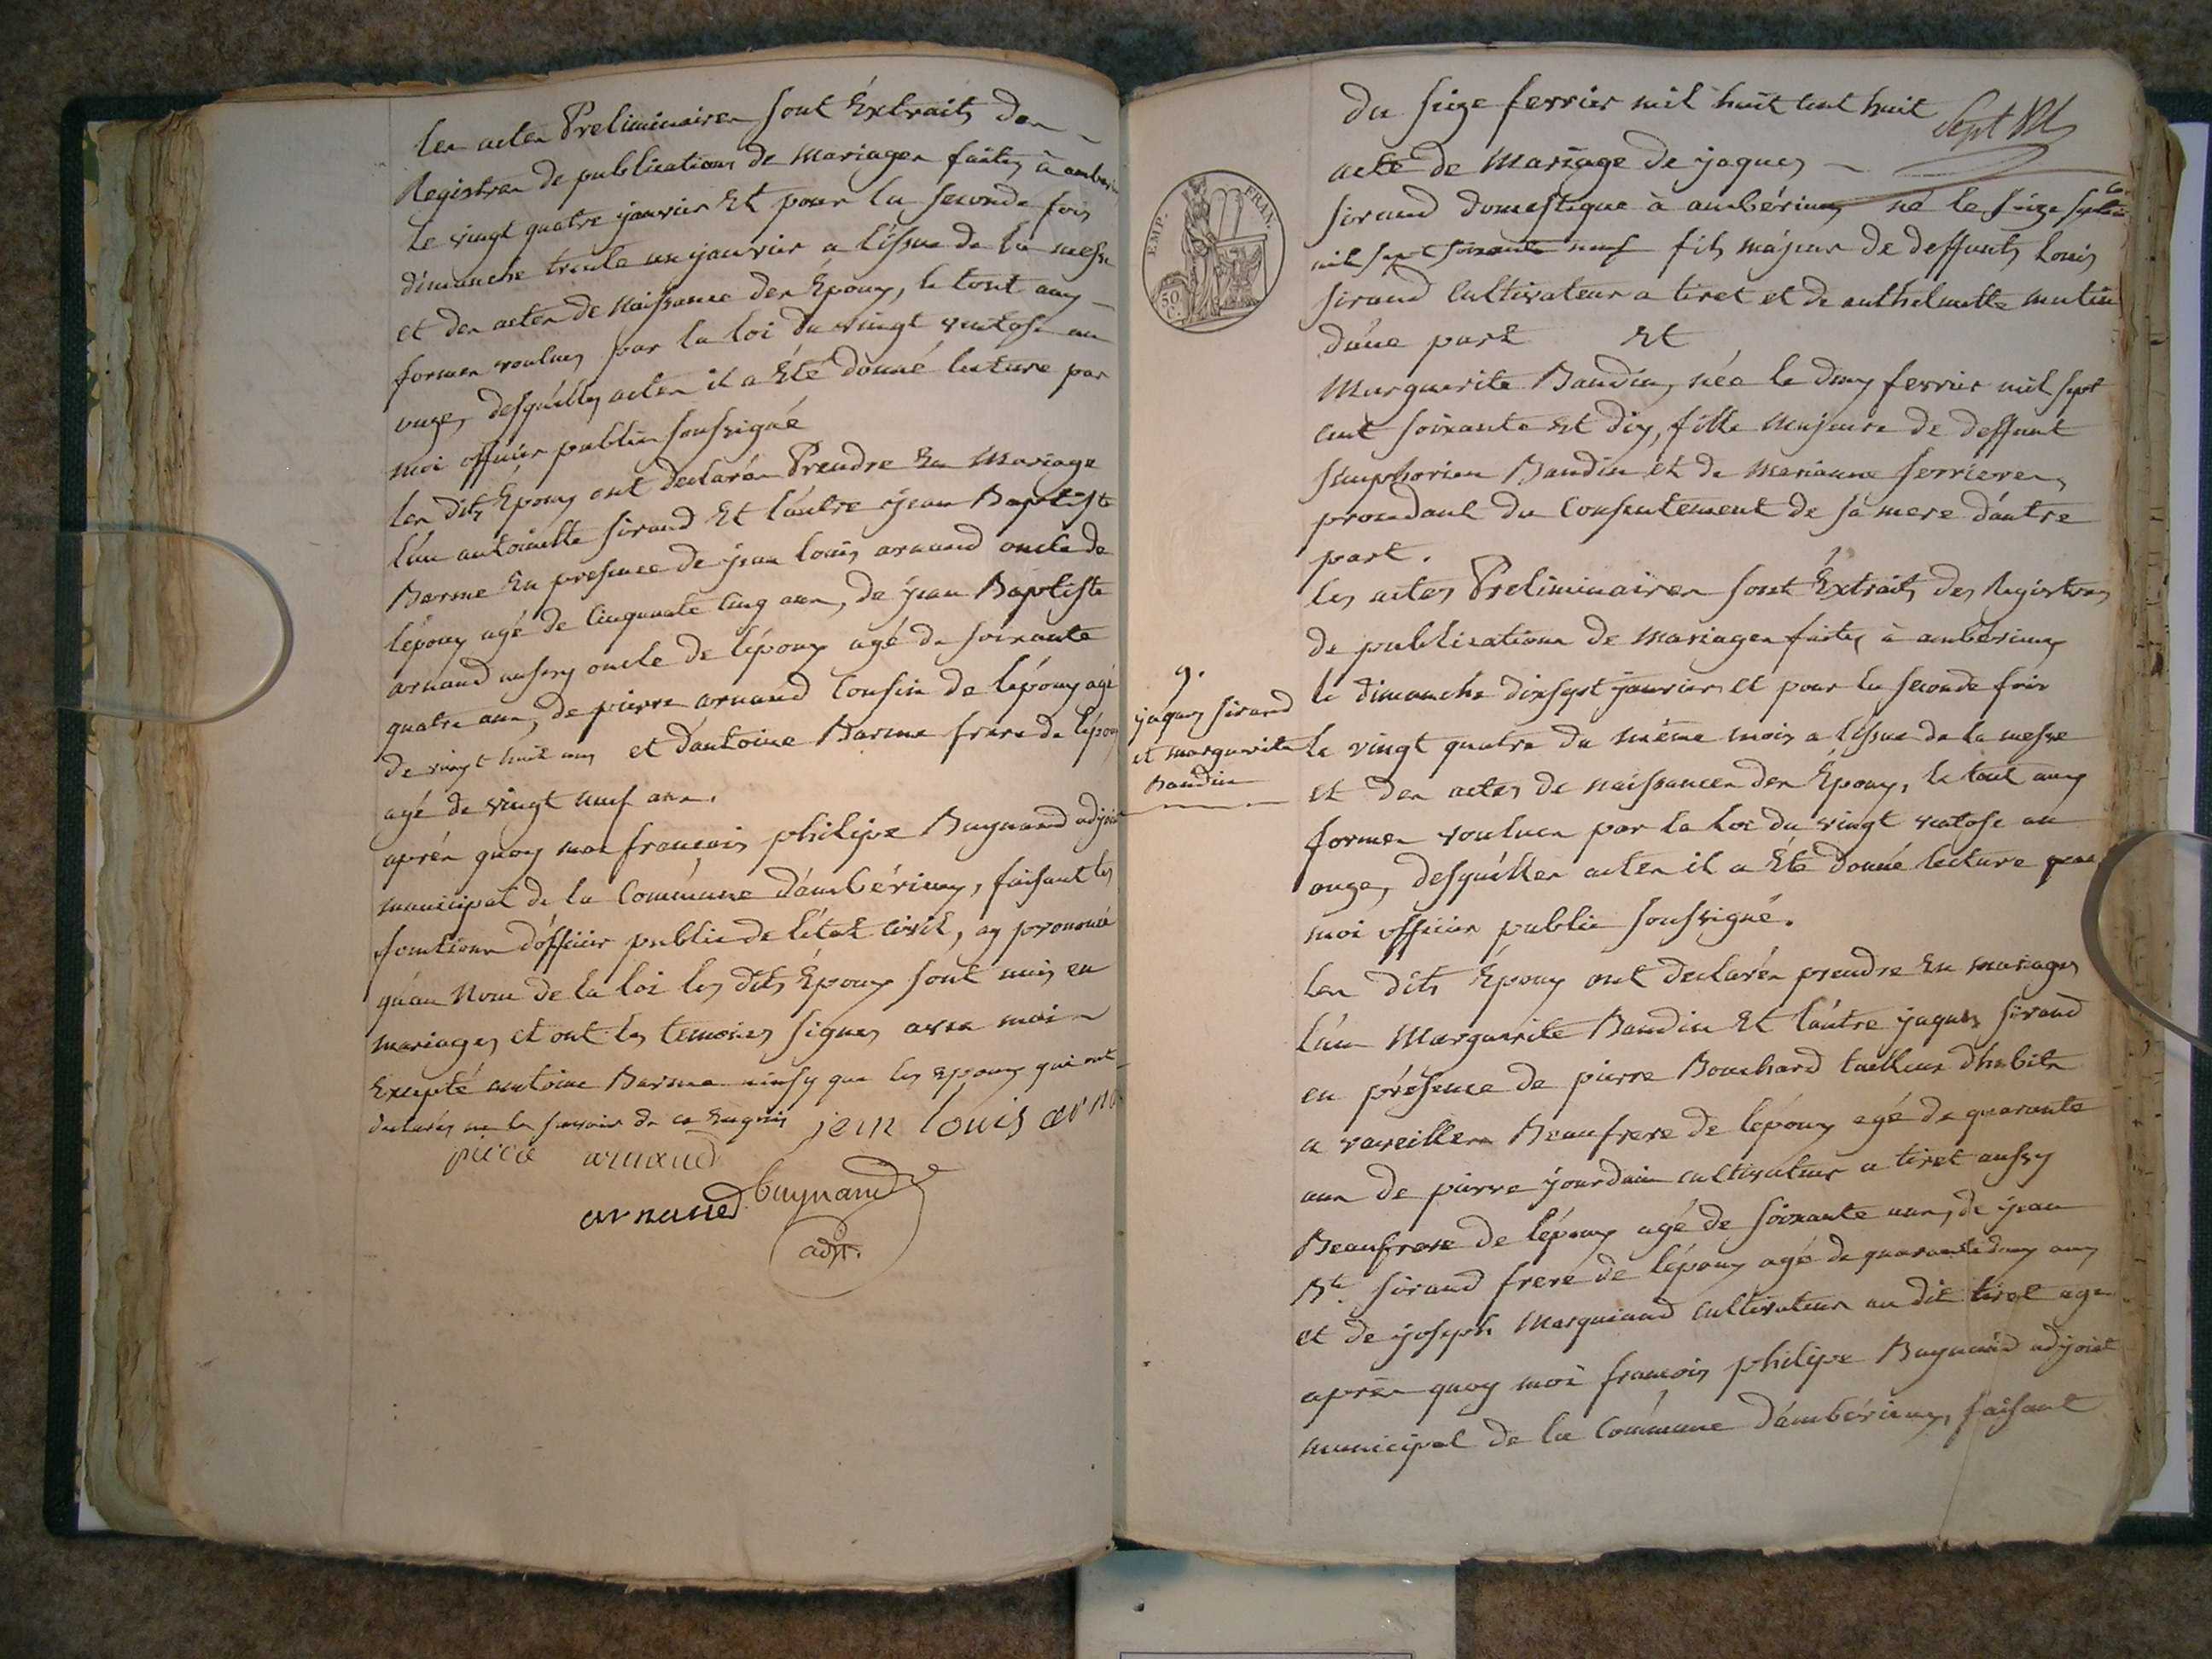 les actes Preliminaires sont Extraits des
Registres de publications de Mariages faites à amberieux
le vingt quatre janvier Et pour la seconde fois
dimanche trente un janvier a l'issue de la messe
et des actes de naissance des Epoux, le tout aux
formes voulues par la loi du vingt ventose an
onze, desquelles actes il a Eté donné lecture par
moi officier public soussigné
les dits Epoux ont declarés Prendre En Mariage
l'un antoinette sirand Et l'autre jean Baptiste
Barme En presence de jean louis arnaud oncle de
l'époux agé de cinquante cinq ans, de jean Baptiste
arnaud aussy oncle de l'époux agé de soixante
quatre ans, de pierre arnaud Cousin de l'époux agé
de vingt huit ans et d'antoine Barme frere de l'époux
agé de vingt neuf ans.
aprés quoy moi francois philipe Buynand adjoint
municipal de la Commune d'ambérieux, faisant les
fonctions d'officier public de l'état civil, ay prononcé
qu'au Nom de la loi les dits Epoux sont unis en
mariages, et ont les temoins signes avec moi
Excepté antoine Barme ainsy que les Epoux qui ont
declarés ne le savoir de ce Enquis jein louis arno
piere arnaud
arnaud buynand
adjt.
du seize fevrier mil huit cent huit
Sept
acte de Mariage de jaques
sirand domestique à ambérieux né le seize septembre
mil sept soixante neuf fils majeur de deffunts Louis
sirand Cultivateur a tiret et de anthelmette mutin
d'une part Et
Marguerite Baudin, née le deux fevrier mil sept
cent soixante Et dix, fille majeure de deffunt
simphorien Baudin et de Marianne ferrieres
procedant du Consentement de sa mere d'autre
part.
les actes Preliminaires sont Extraits des Registres
de publications de Mariages faites à ambérieux
le dimanche dix sept janvier et pour la seconde fois
9.
jaques sirand
et marguerite
Baudin
le vingt quatre du même mois a l'issue de la messe
et des actes de naissances des Epoux, le tout aux
formes voulues par la Loi du vingt ventose an
onze, desquelles actes il a Eté donné lecture par
moi officier public soussigné.
les dits Epoux ont declarés prendre En mariages
l'un Marguerite Baudin Et l'autre jaques sirand
en présence de pierre Bouchard tailleur d'habits
a vareilles Beaufrere de l'époux agé de quarante
ans de pierre jourdain cultivateur a tiret aussy
Beaufrere de l'époux agé de soixante ans, de jean
Bte. sirand frere de l'époux agé de quarante deux ans
et de joseph Marguiand cultivateur au dit tiret agé
aprés quoy moi francois philipe Buynand adjoint
municipal de la Commune d'ambérieux, faisant
EMP. FRAN.
50 C.